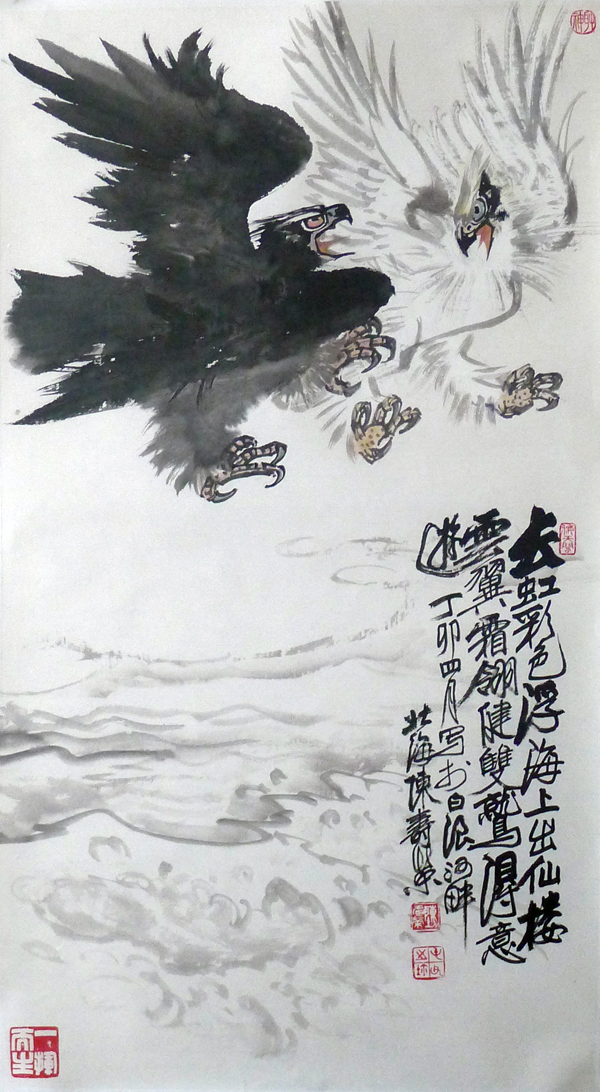 长虹彩色浮海上出仙楼
雲翼霜翎健雙鷲得意
遊
丁卯四月写于白浪河畔
北海陳壽榮